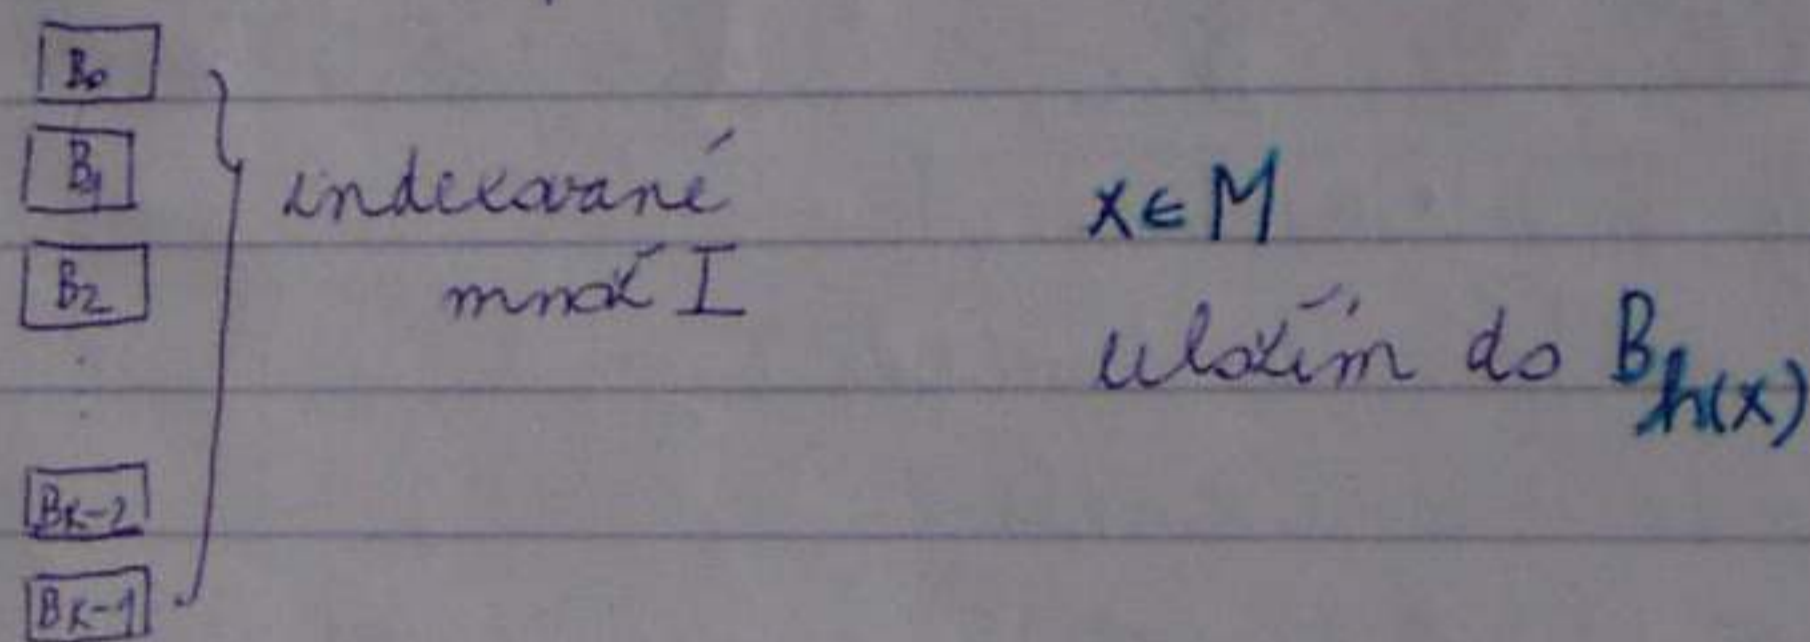 B0
B1
B2
BK-2
BK-1
indexované
množ I
x ∈ M
uložím do B h(x)